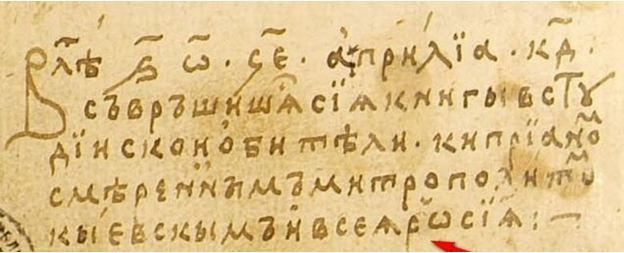 В лⷮѣ ҂ѕ҃ ѡ҃ · ҁ҃е · априлїа · к҃д ·
съвръшишѧ сїѧ книгы в сту
дїискои обитѣли · кипрїаноⷨ
смѣренныимъ митрополитоⷨ
кыевскымъ и всеѧ рѡсїѧ : —